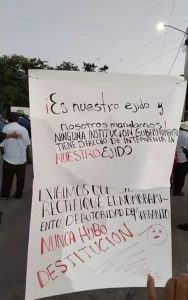 ¡Es nuestro ejido y
nosotros mandamos!
NINGUNA INSTITUCIÓN GUBERNAMENTAL
TIENE DERECHO DE INTERVENIR EN
NUESTRO EJIDO
EXIGIMOS QUE SE
RECTIFIQUE EL NOMBRAMI-
ENTO DE AUTORIDAD DEL EJIDO
NUNCA HUBO
DESTITUCION